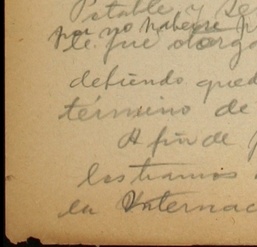 Potable, y se
por no haberse p
le fue otorga
debiendo qued
término de
A fin de
los tramos
la Internac